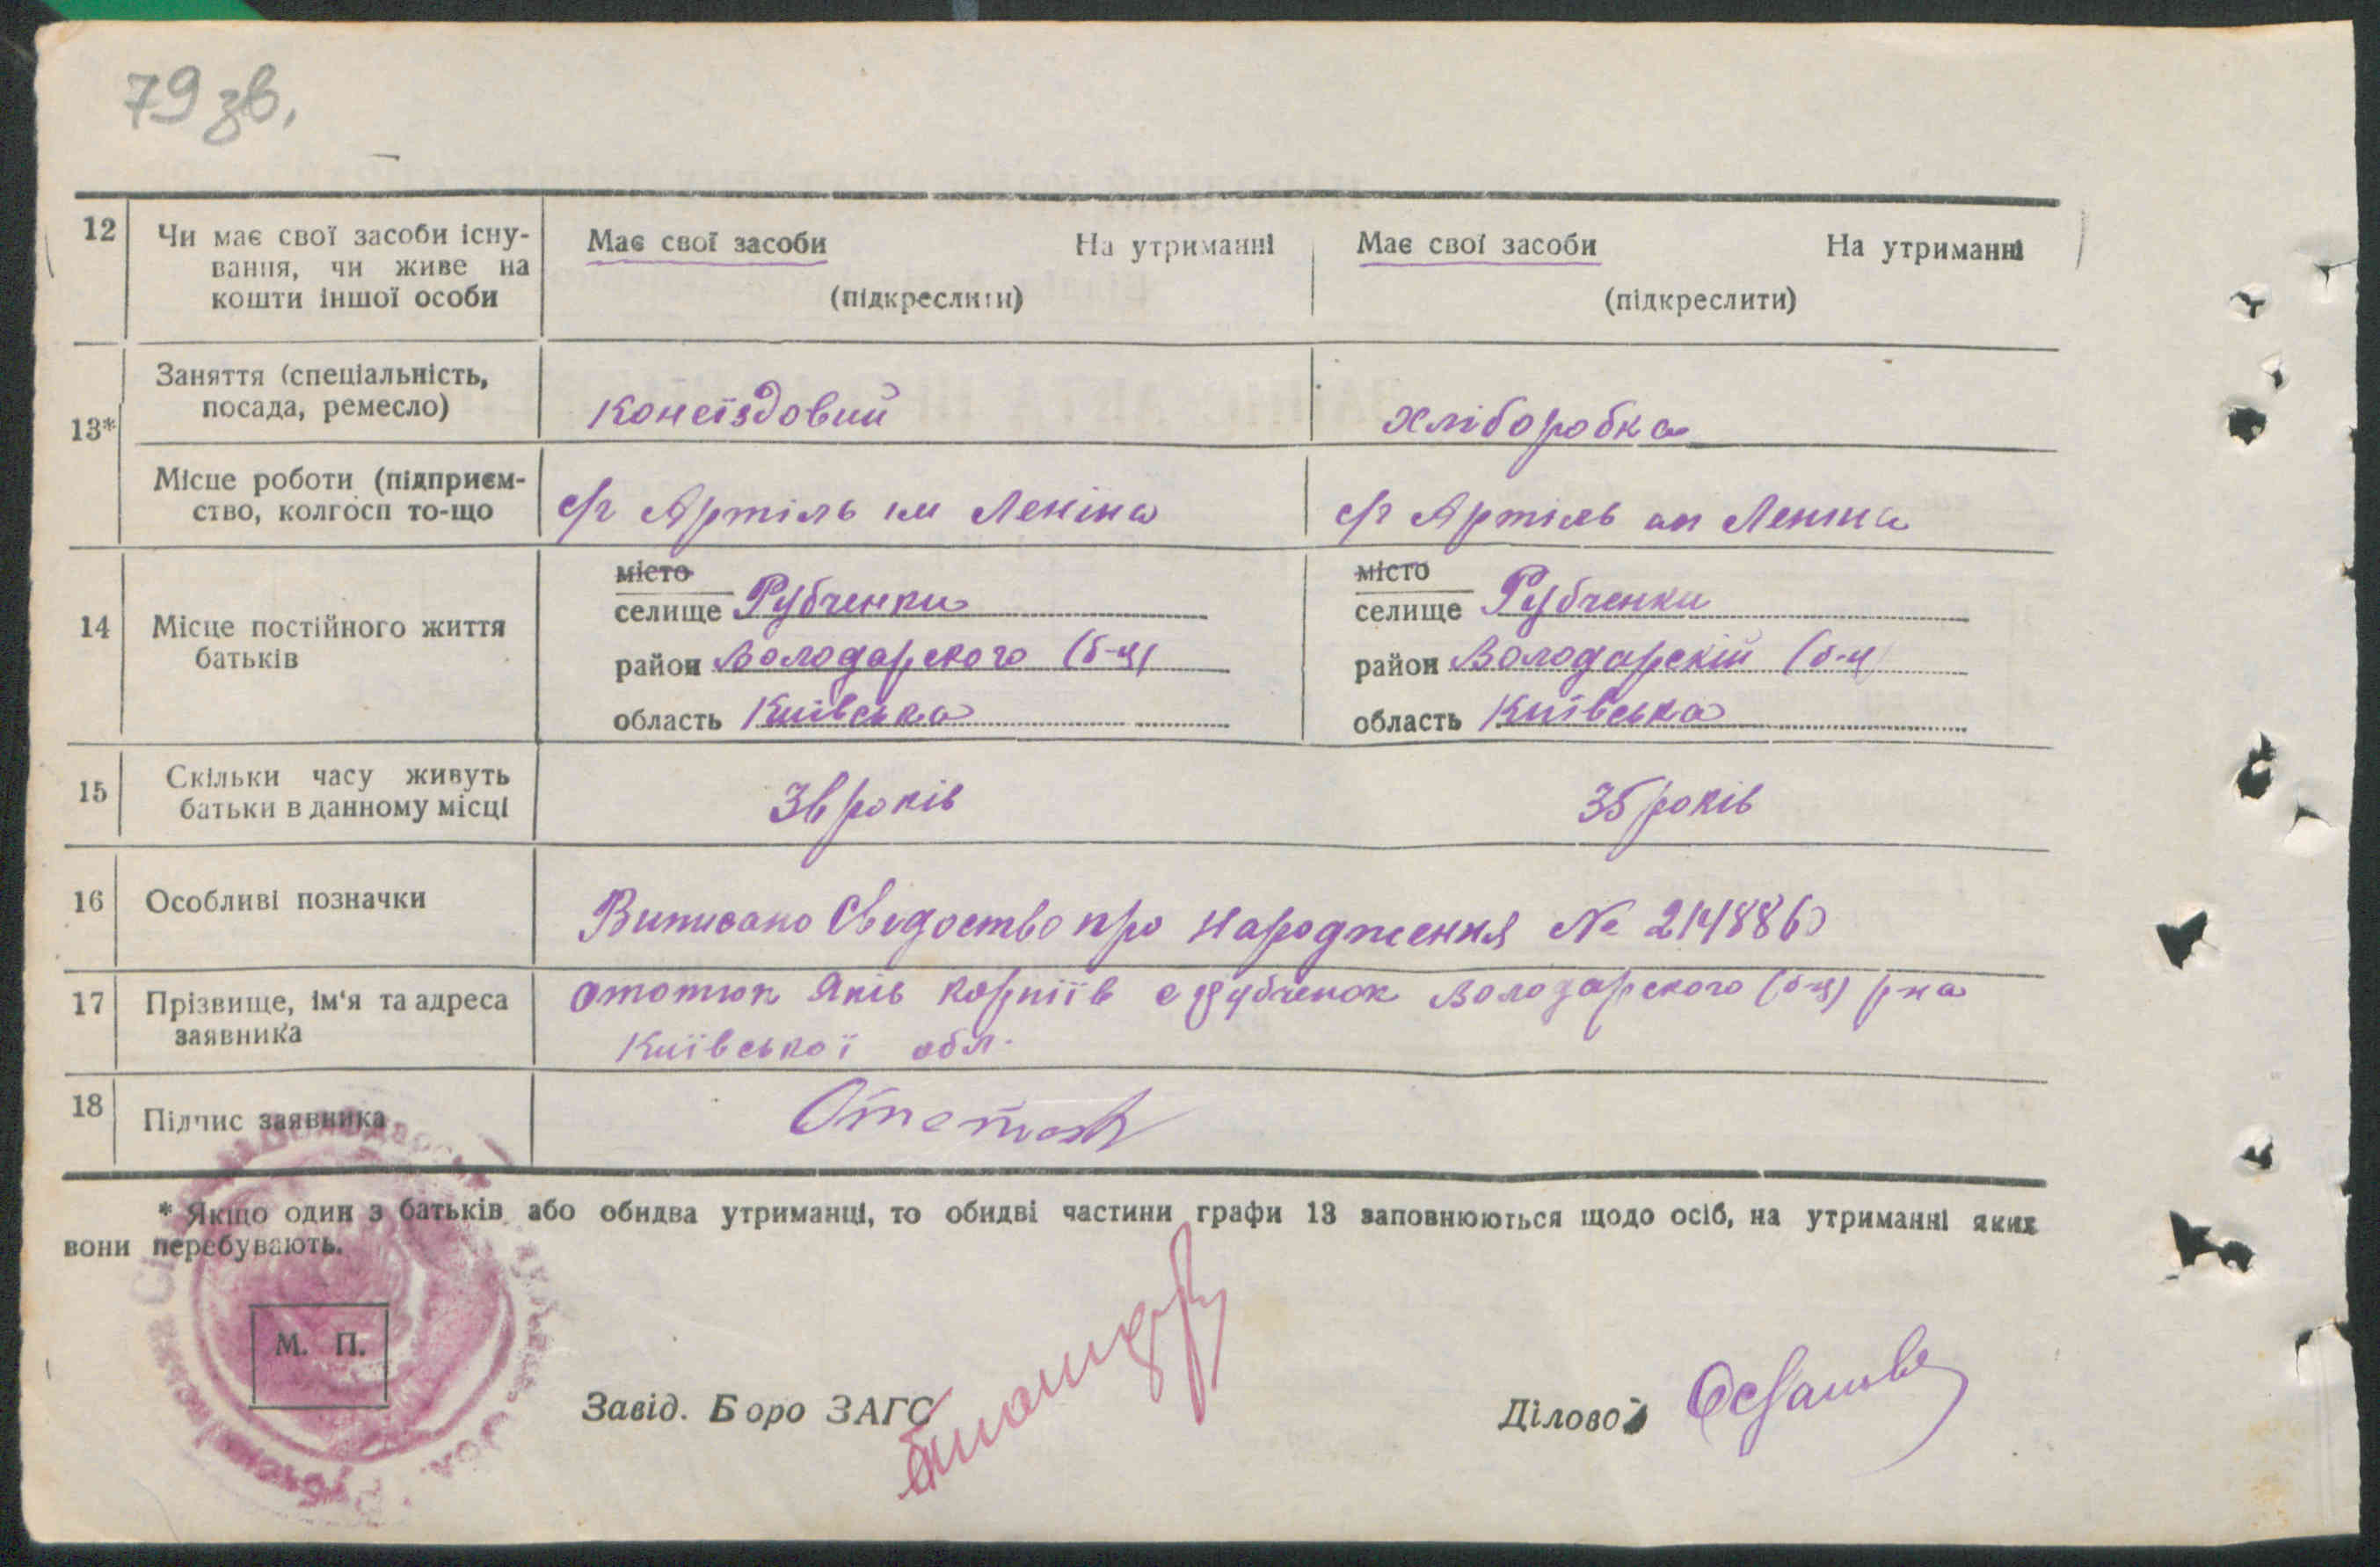 79 зв.
12 Чи має свої засоби існу- Має свої засоби На утриманні Має свої засоби На утриманні
вання, чи живе на
кошти іншої особи (підкреслити) (підкреслити)
13* Заняття (спеціальність,
посада, ремесло) конеїздовий хліборобка
Місце роботи (підприєм-
ство, колгосп то-що с/г Артіль ім Леніна с/г Артіль ім Леніна
місто місто
14 Місце постійного життя селище Рубченки селище Рубченки
батьків район Володарского (б-ц) район Володарскій (б-ц)
область Київська область Київська
15 Скільки часу живуть
батьки в данному місці 36 років 35 років
16 Особливі позначки Виписано Свідоство про народження № 214886
17 Прізвище, ім'я та адреса Ототюк Яків Корніїв с Рубченок Володарского (б-ц) р-на
заявника Київської обл.
18 Підпис заявника
* Якщо один з батьків або обидва утриманці, то обидві частини графи 13 заповнюються щодо осіб, на утриманні яких
вони перебувають.
М. П.
Завід. Боро ЗАГС Діловод